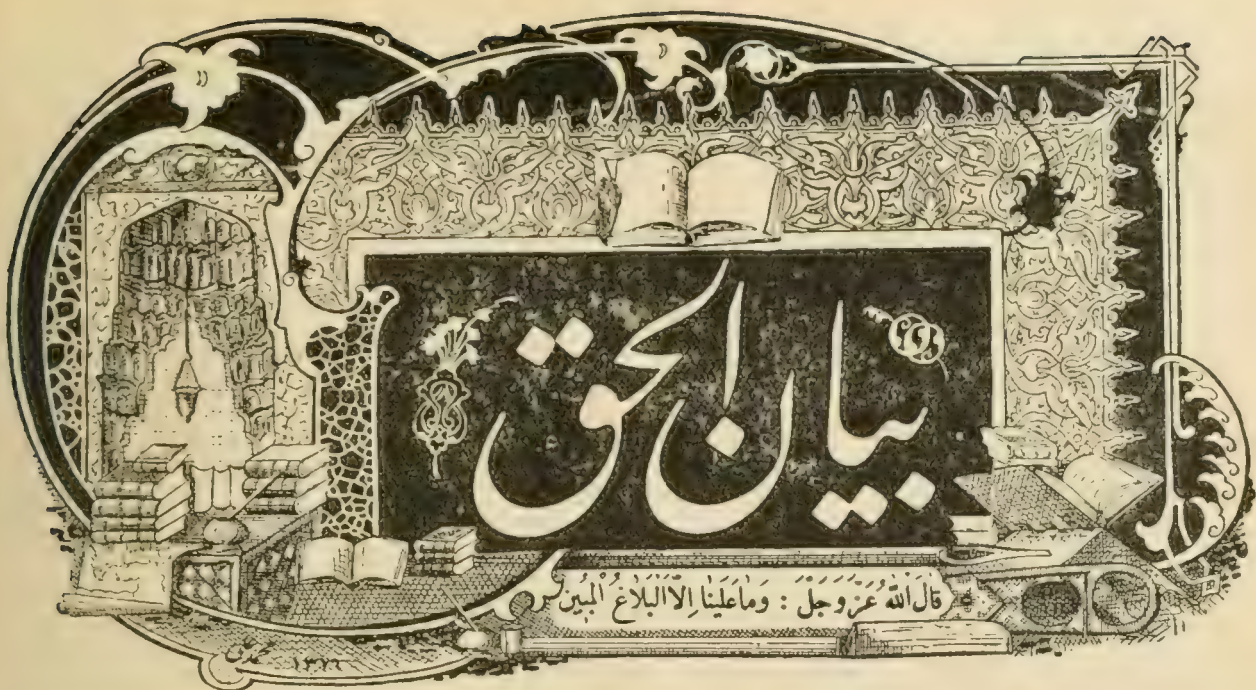 بيان الحق
قَالَ اللّٰهُ عَزَّ وَجَلَّ : وَمَا عَلَيْنَا اِلَّا الْبَلَاغُ الْمُبِين
١٣٢٦